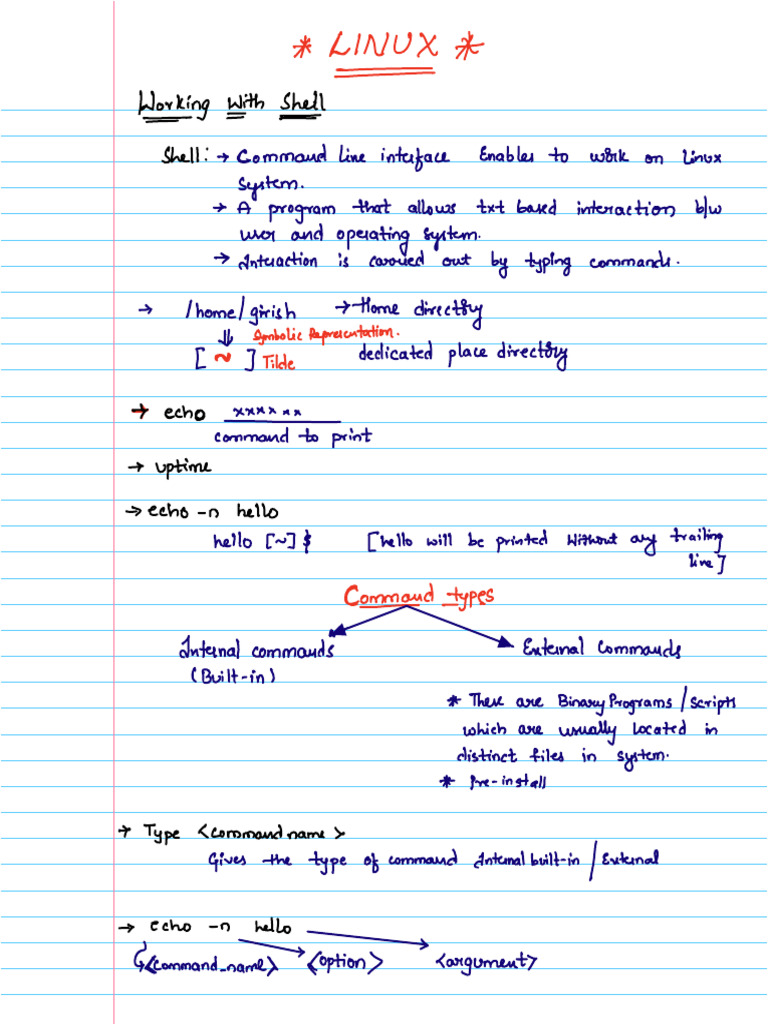 * LINUX *
Working With Shell
Shell: → Command line interface Enables to work on Linux
system.
→ A program that allows txt based interaction b/w
user and operating system.
→ Interaction is carried out by typing commands.
→ /home/girish → Home directory
⇓ Symbolic Representation.
[ ~ ] Tilde dedicated place directory
→ echo xxxxxx
command to print
→ uptime
→ echo -n hello
hello [~] $ [hello will be printed without any trailing
line]
Command types
Internal commands External Commands
(Built-in)
* These are Binary Programs/scripts
which are usually located in
distinct files in system.
* Pre-install
→ Type <command name>
Gives the type of command Internal built-in / External
→ echo -n hello
<command_name> <option> <argument>